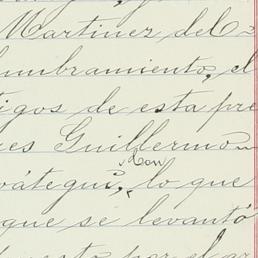 Martinez del C=
lumbramiento, el
tigos de esta pre
es Guillermo
don
oátegui, lo que
que se levantó
por el